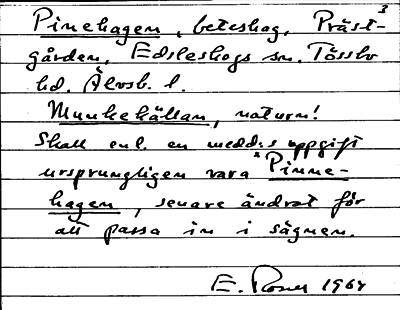 3
Pinehagen, beteshag, Präst-
gården, Edsleskogs sn. Tössbo
hd. Älvsb. l.
Munkekällan, naturn!
Skall enl. en medd:s uppgift
ursprungligen vara "Pinne-
hagen, senare ändrat för
att passa in i sägnen.
E. Rosen 1964